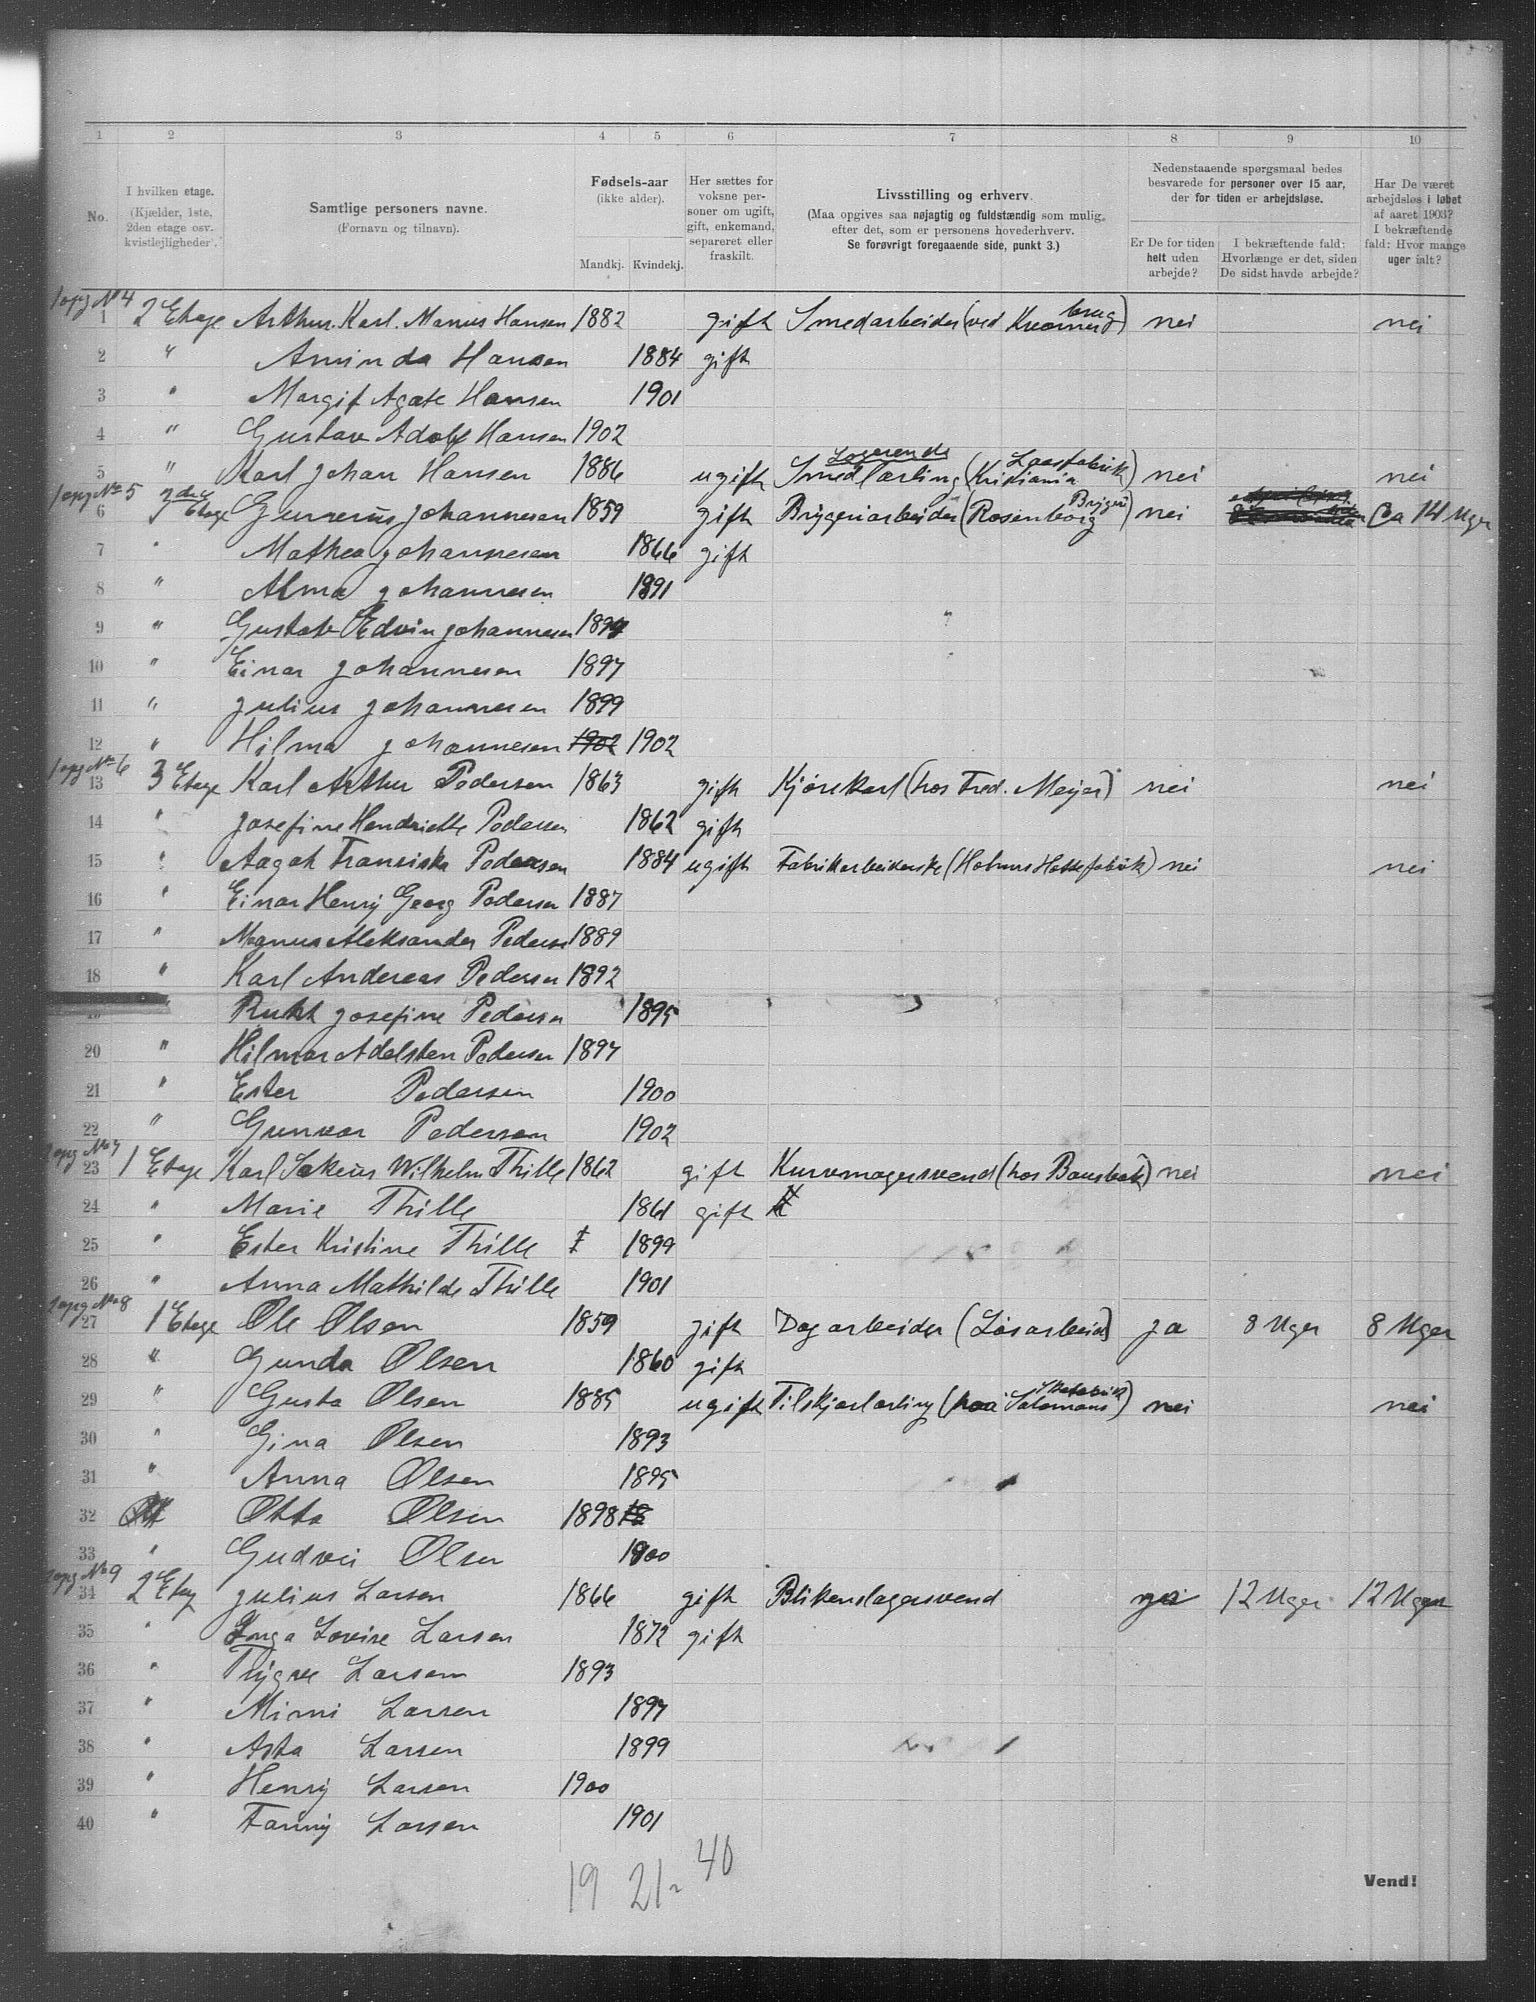 1 2 3 4 5 6 7 8 9 10
No.
I hvilken etage.
(Kjælder, 1ste, 2den etage osv. kvistlejligheder.
Samtlige personers navne.
(Fornavn og tilnavn).
Fødsels-aar
(ikke alder).
Mandkj. Kvindekj.
Her sættes for voksne personer om ugift, gift, enkemand, separeret eller fraskilt.
Livsstilling og erhverv.
(Maa opgives saa nøjagtig og fuldstændig som mulig, efter det, som er personens hovederhverv.
Se forøvrigt foregaaende side, punkt 3.)
Nedenstaaende spørgsmaal bedes besvarede for personer over 15 aar, der for tiden er arbejdsløse.
Er De for tiden helt uden arbejde?
I bekræftende fald: Hvorlænge er det, siden De sidst havde arbejde?
Har De været arbejdsløs i løbet af aaret 1903? I bekræftende fald: Hvor mange uger ialt?
No 4
1 2 Etage Arthur. Karl. Marius Hansen 1882 gift Smedarbeider (ved Kværner brug) nei nei
2 " Aminda Hansen 1884 gift
3 " Margit Agate Hansen 1901
4 " Gustav Adolf Hansen 1902
5 " Karl Johan Hansen 1886 ugift Logerende Smedlærling (Kristiania Laasfabrik) nei nei
No 5
6 2den Etage Gunerius Johannesen 1859 gift Bryggeriarbeider (Rosenborg Bryggeri) nei Ca 14 Uger
7 " Mathea Johannesen 1866 gift
8 " Alma Johannesen 1891
9 " Gustav Edvin Johannesen 1894
10 " Einar Johannesen 1897
11 " Julius Johannesen 1899
12 " Hilma Johannesen 1902 1902
No 6
13 3 Etage Karl Arthur Pedersen 1863 gift Kjørekarl (hos Fred. Meijer) nei nei
14 " Josefine Hendriette Pedersen 1862 gift
15 " Aagot Franciska Pedersen 1884 ugift Fabrikarbeiderske (Holmns Hattefabrik) nei nei
16 " Einar Henry Georg Pedersen 1887
17 " Magnus Aleksander Pedersen 1889
18 " Karl Andreas Pedersen 1892
19 " Ruth Josefine Pedersen 1895
20 " Hilmar Adelsten Pedersen 1897
21 " Ester Pedersen 1900
22 " Gunvor Pedersen 1902
No 7
23 1 Etage Karl Sakeus Wilhelm Thille 1862 gift Kurvmagersvend (hos Bausbak) nei nei
24 " Marie Thille 1861 gift
25 " Ester Kristine Thille 1899
26 " Anna Mathilde Thille 1901
No 8
27 1 Etage Ole Olsen 1859 gift Dagarbeider (Løsarbeide) ja 8 Uger 8 Uger
28 " Gunda Olsen 1860 gift
29 " Gusta Olsen 1885 ugift Tilskjærlærling (Salomons Skofabrik) nei nei
30 " Gina Olsen 1893
31 " Anna Olsen 1895
32 Otto Olsen 1898
33 " Gudvei Olsen 1900
No 9
34 2 Etag Julius Larsen 1866 gift Blikenslagersvend 12 Uger 12 Uger
35 " Inga Lovise Larsen 1872 gift
36 " Trygve Larsen 1893
37 " Mimi Larsen 1897
38 " Asta Larsen 1899
39 " Henry Larsen 1900
40 " Fanny Larsen 1901
19 21 - 40
Vend!